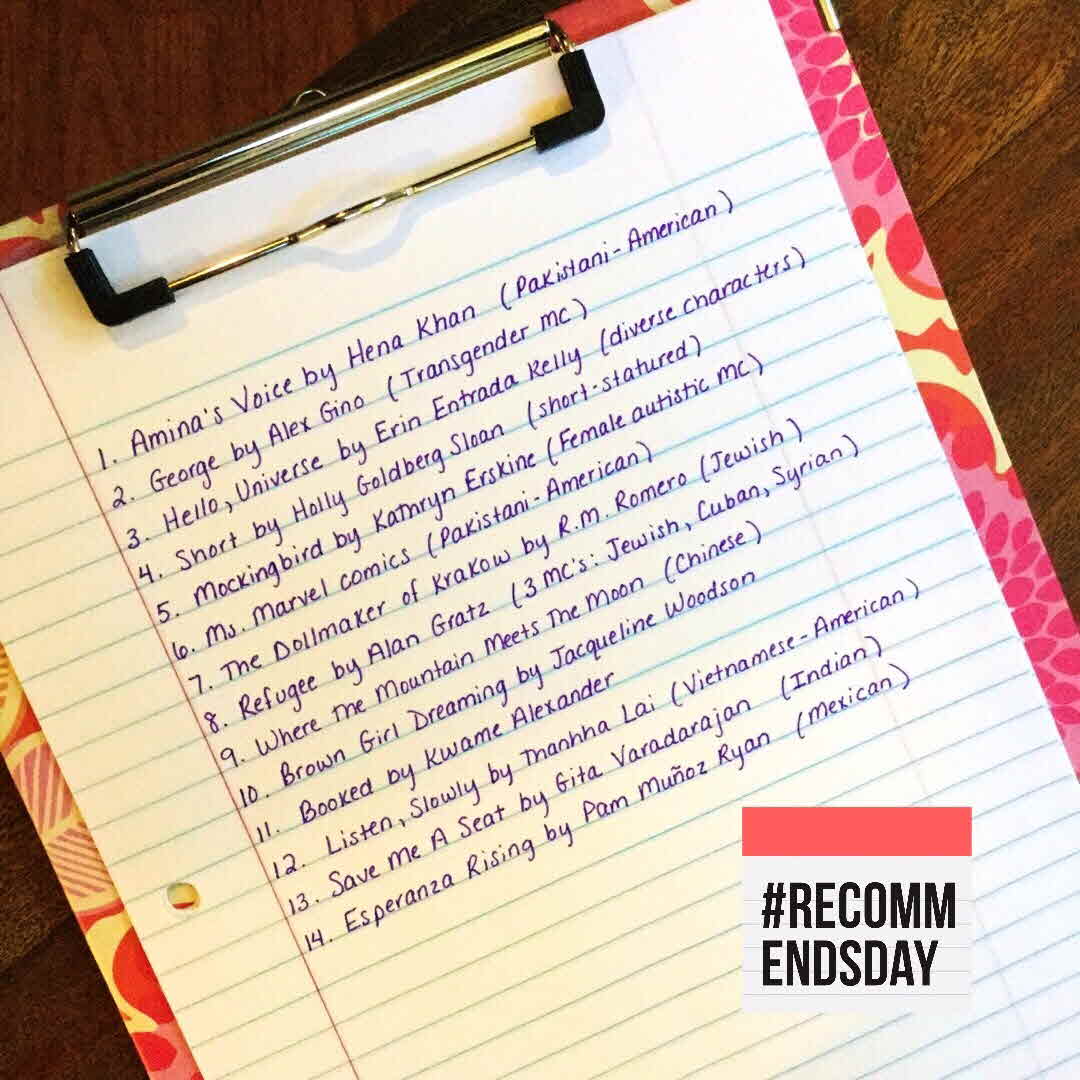 1. Amina's Voice by Hena Khan (Pakistani-American)
2. George by Alex Gino (Transgender mc)
3. Hello, Universe by Erin Entrada Kelly (diverse characters)
4. Short by Holly Goldberg Sloan (short-statured)
5. Mockingbird by Kathryn Erskine (Female autistic mc)
6. Ms. Marvel comics (Pakistani-American)
7. The Dollmaker of Krakow by R.M. Romero (Jewish)
8. Refugee by Alan Gratz (3 mc's: Jewish, Cuban, Syrian)
9. Where the Mountain Meets The Moon (Chinese)
10. Brown Girl Dreaming by Jacqueline Woodson
11. Booked by Kwame Alexander
12. Listen, Slowly by Thanhha Lai (Vietnamese-American)
13. Save Me A Seat by Gita Varadarajan (Indian)
14. Esperanza Rising by Pam Muñoz Ryan (Mexican)
#RECOMM
ENDSDAY